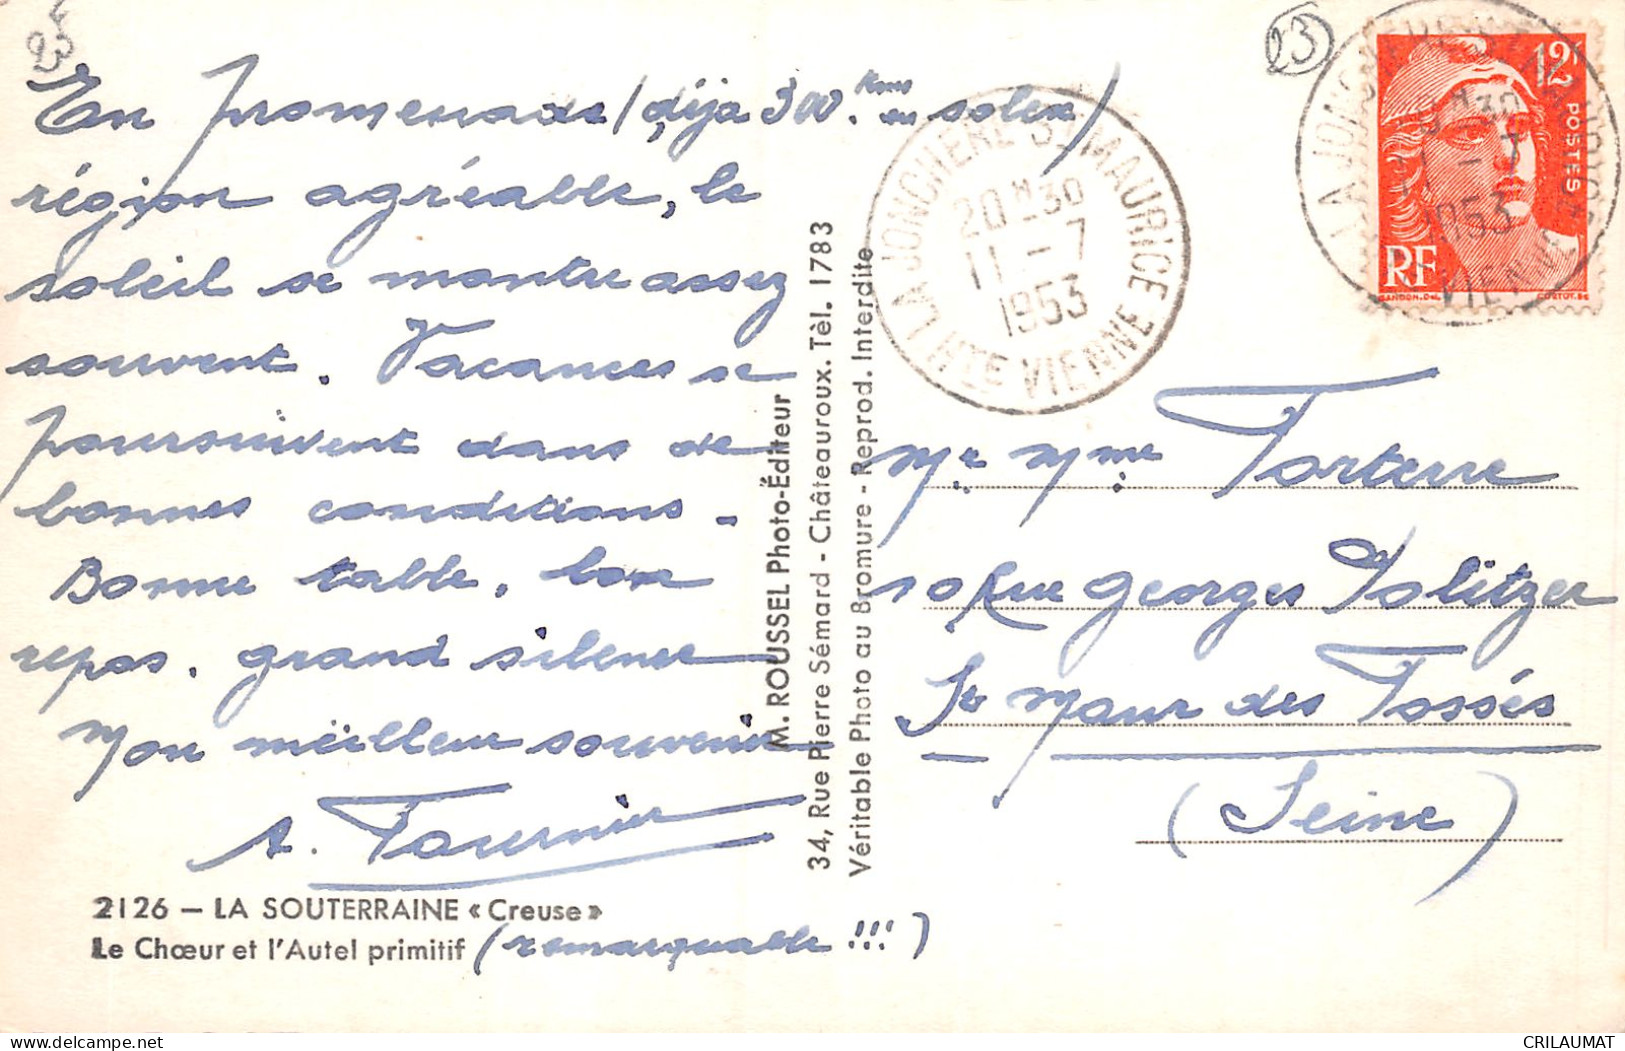 23
En promenade (déjà 300 kms en solex)
région agréable, le
soleil se montre assez
souvent. Vacances se
poursuivent dans de
bonnes conditions.
Bonne table, bon
repos. grand silence
Mon meilleur souvenir
A. Fournier
2126 — LA SOUTERRAINE « Creuse »
Le Chœur et l'Autel primitif (remarquable !!!)
M. ROUSSEL Photo-Éditeur
34, Rue Pierre Sémard - Châteauroux. Tèl. 1783
Véritable Photo au Bromure - Reprod. Interdite
LA JONCHERE ST MAURICE
20 H 30
11 - 7
1953
HTE VIENNE
23
12F
POSTES
RF
GANDON.Del.
CORTOT.Sc
LA JONCHERE ST MAURICE
30
- 7
1953
VIENNE
Mr Mme Porterre
10 Rue Georges Politzer
St Maur des Fossés
(Seine)
CRILAUMAT